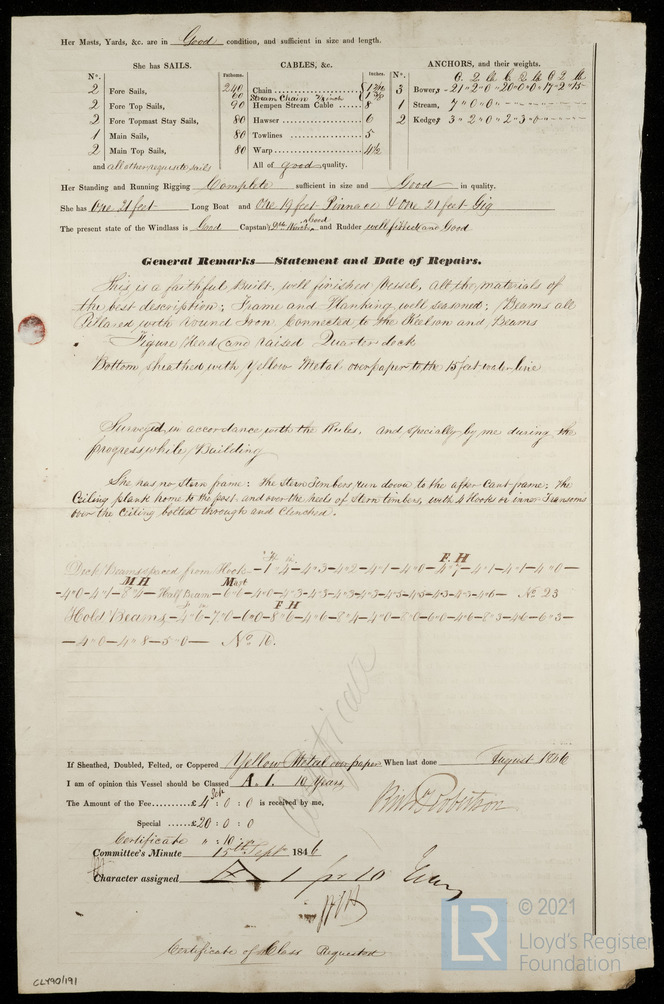 Her Masts, Yards, &c. are in Good condition, and sufficient in size and length.
She has SAILS.
CABLES, &c.
ANCHORS, and their weights.
No.
Fathoms.
Inches.
No.
C. Q. lb. C. Q. lb. C. Q. lb
2 Fore Sails,
240 Chain
3 Bowers 21 " 2 " 0 " 20 " 0 " 0 " 17 " 2 " 15
60 Stream Chain
2 Fore Top Sails,
90 Hempen Stream Cable 8
1 Stream, 7 " 0 " 0 "
2 Fore Topmast Stay Sails,
80 Hawser 6
2 Kedges 3 " 2 " 0 " 2 " 3 " 0
1 Main Sails,
80 Towlines 5
2 Main Top Sails,
80 Warp 4½
and all other requisite sails
All of good quality.
Her Standing and Running Rigging Complete sufficient in size and Good in quality.
She has One 21 feet Long Boat and One 19 feet Pinnace & One 21 feet Gig
The present state of the Windlass is Good Capstan Good and Rudder well fitted and Good
General Remarks—Statement and Date of Repairs.
This is a faithful Built, well finished Vessel, all the materials of
the best description; Frame and Planking well seasoned; Beams all
Pillared with round Iron Connected to the Keelson and Beams
Figure Head and raised Quarter deck
Bottom sheathed with Yellow Metal over paper to the 15 feet water line
Surveyed in accordance with the Rules. and specially by me during the
progress while Building
She has no stern frame: the stern timbers run down to the after Cant frame; the
Ceiling plank home to the post, and over the heels of Stern timbers, with 4 Hooks or inner Transoms
over the Ceiling bolted through and Clenched.
Ft in
F. H
Deck Beams spaced from Hook - 1"4 - 4"3 - 4"2 - 4"1 - 4"0 - 4"7 - 4"1 - 4"1 - 4"0
M H
Mast
4"0 - 4"1 - 8"4 - Half Beam - 6"0 - 4"0 - 4"3 - 4"3 - 4"3 - 4"3 - 4"5 - 4"3 - 4"3 - 4"6 - No. 23
F H
Hold Beams - 4"6 - 7"0 - 6"0 - 8"6 - 4"6 - 8"4 - 4"0 - 8"0 - 6"0 - 4"6 - 8"3 - 4"6 - 6"3
4"0 - 4"8 - 5"0 - No. 16.
Certificate
If Sheathed, Doubled, Felted, or Coppered Yellow Metal over paper When last done August 1846
I am of opinion this Vessel should be Classed A. 1. 10 Years,
The Amount of the Fee £4 : 0 : 0 is received by me,
Robertson
Special £20 : 0 : 0
Certificate " : 10 :
Committee's Minute 15th Sept. 1846
Character assigned A 1 for 10
Certificate of Class Requested
CLY90/191
LR
© 2021
Lloyd's Register
Foundation